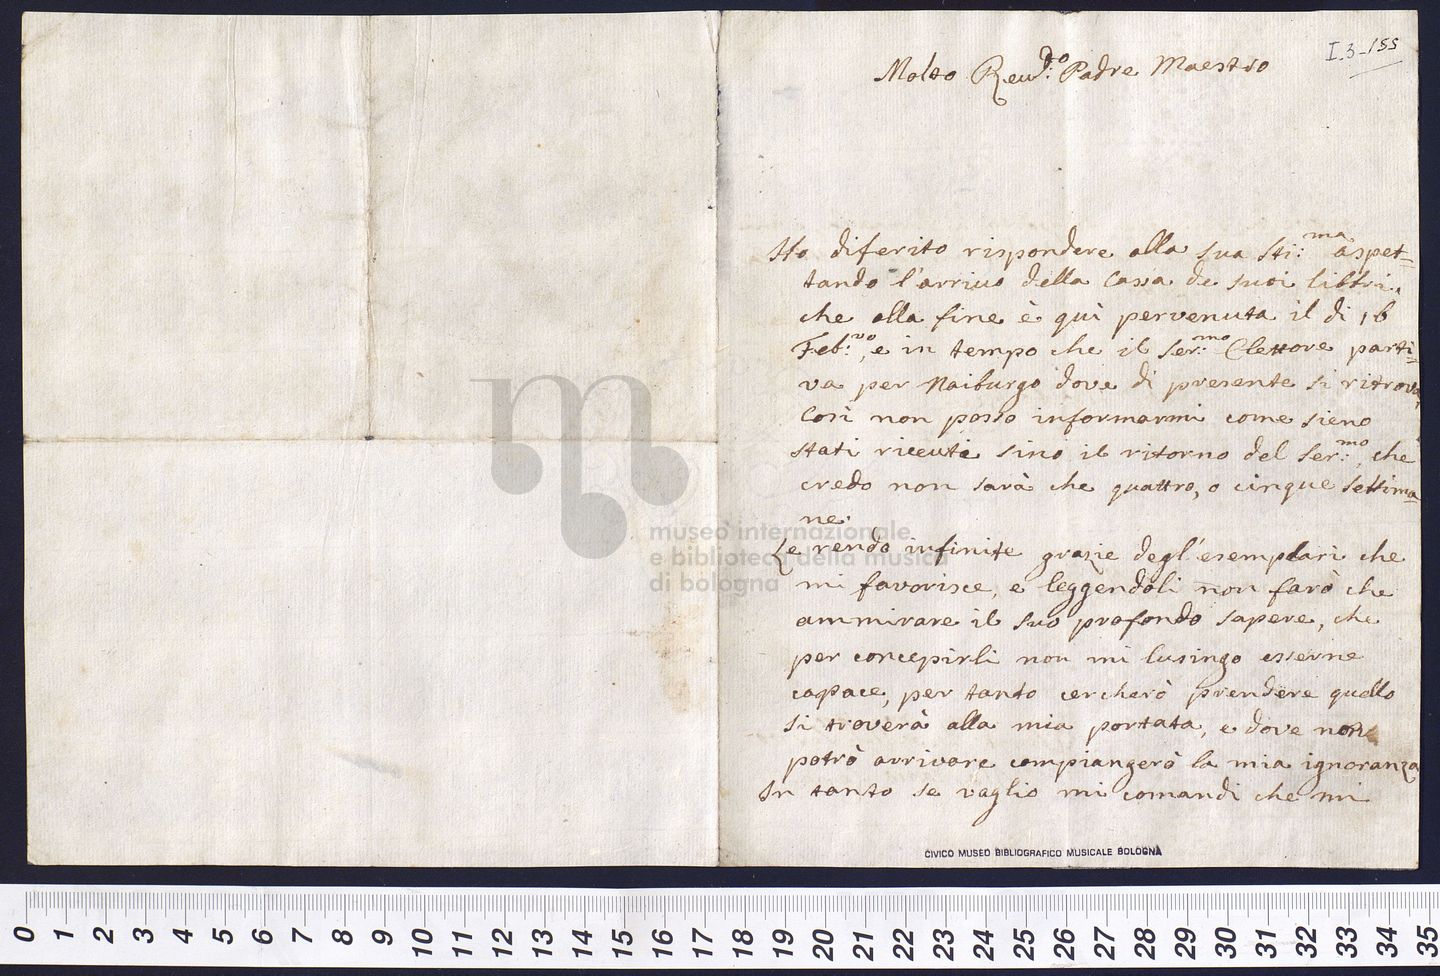 I.3-155
Molto Reud:do Padre Maestro
Ho diferito rispondere alla sua sti:ma aspet=
tando l'arriuo della Cassa de suoi libbri,
che alla fine è quì pervenuta il di 16
Feb:ro, e in tempo che il ser:mo Elettore parti=
va per Naiburgo dove di presente si ritrova,
Così non posso informarmi come sieno
stati riceuti sino il ritorno del ser:mo, che
credo non sarà che quattro, o cinque settima=
ne.
Le rendo infinite grazie degl'esemplari che
mi favorisce, e leggendoli non farò che
ammirare il suo profondo sapere, che
per concepirli non mi lusingo esserne
capace, per tanto cercherò prendere quello
si troverà alla mia portata, e dove non
potrò arrivare compiangerò la mia ignoranza
In tanto se vaglio mi comandi che mi
museo internazionale
e biblioteca della musica
di bologna
CIVICO MUSEO BIBLIOGRAFICO MUSICALE BOLOGNA
0 1 2 3 4 5 6 7 8 9 10 11 12 13 14 15 16 17 18 19 20 21 22 23 24 25 26 27 28 29 30 31 32 33 34 35